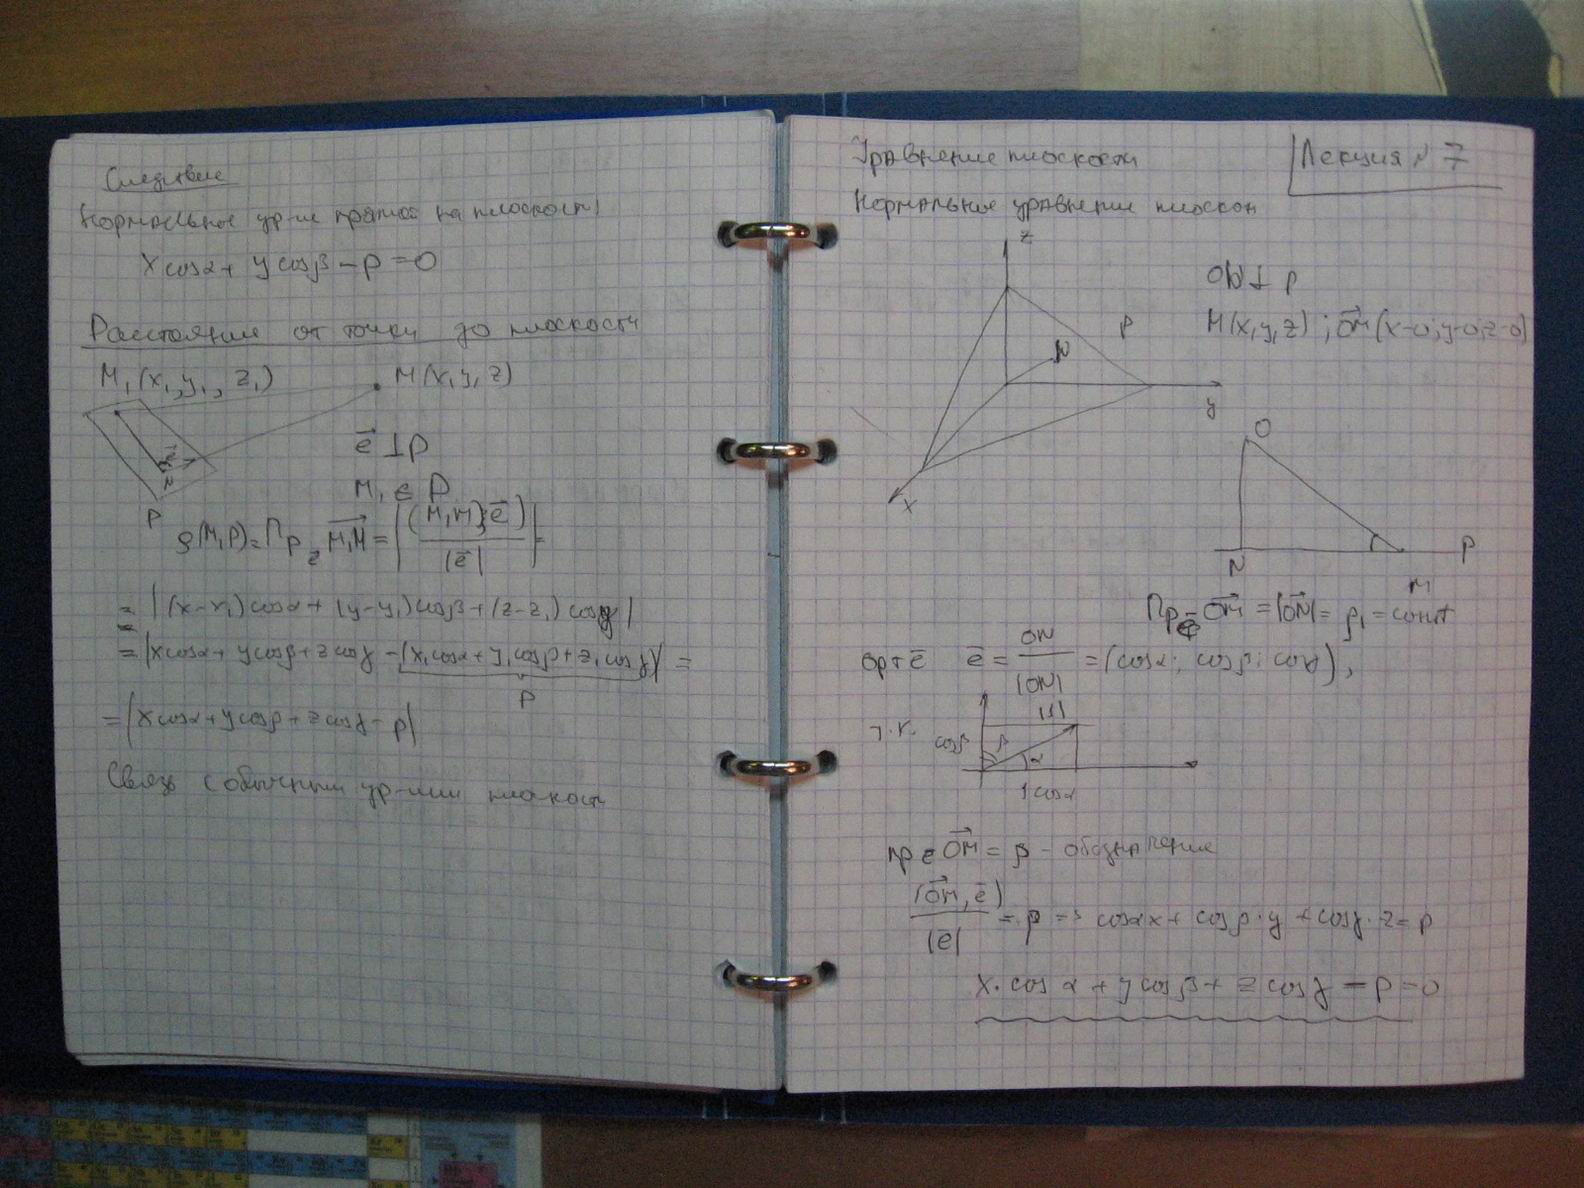 Следствие
Нормальное ур-ие прямой на плоскости
x cosα + y cosβ – p = 0
Расстояние от точки до плоскости
M₁(x₁, y₁, z₁)
M(x, y, z)
e⃗ ⊥ P
M₁ ∈ P
N
P
ρ(M, P) = Пр M₁M⃗ = |(M₁M; e⃗) / |e⃗|| =
= |(x–x₁) cosα + (y–y₁) cosβ + (z–z₁) cosγ|
= |x cosα + y cosβ + z cosγ – (x₁ cosα + y₁ cosβ + z₁ cosγ)| =
p
= |x cosα + y cosβ + z cosγ – p|
Связь с обычным ур-ием плоскости
Лекция № 7
Уравнение плоскости
Нормальное уравнение плоскои
z
ON ⊥ P
M(x, y, z) ; OM⃗ (x–0; y–0; z–0)
P
N
y
x
O
N
M
P
Пр e⃗ OM⃗ = |ON⃗| = ρ₁ = const
орт e⃗ e⃗ = ON / |ON| = (cosα; cosβ; cosγ),
т.к.
|1|
cosβ
β
α
1 cosα
пр e OM⃗ = p – обозначение
(OM⃗, e⃗) / |e| = p => cosα x + cosβ · y + cosγ · z = p
x · cos α + y cosβ + z cosγ – p = 0